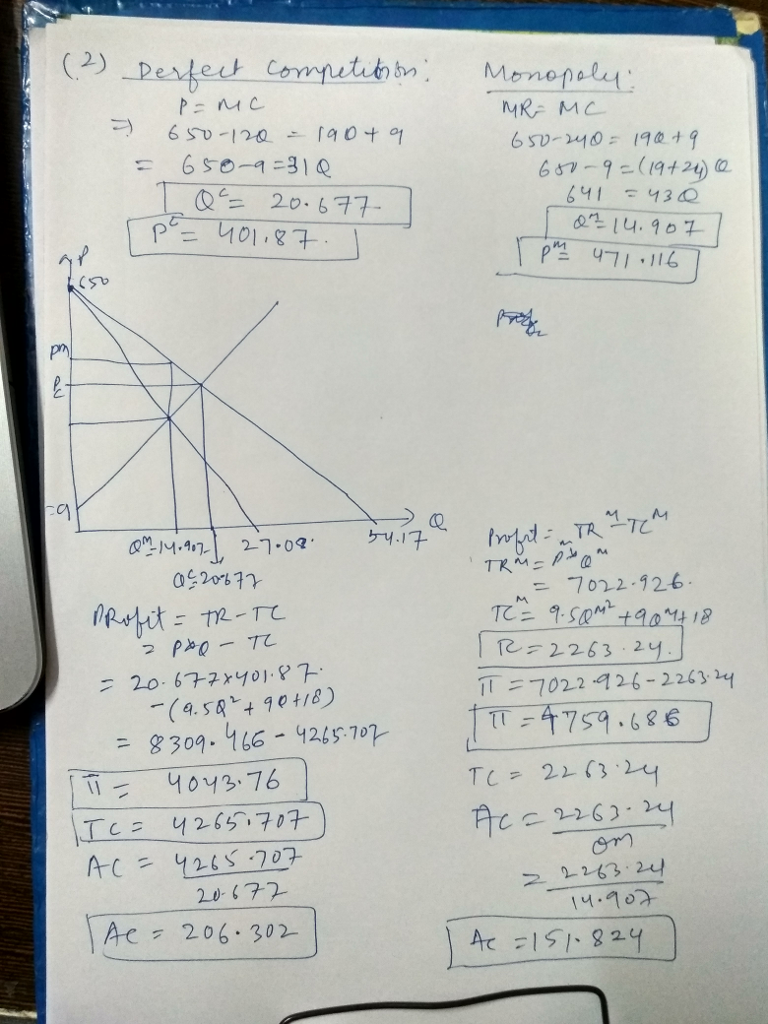 (2) Perfect Competition:
P = MC
⇒ 650-12Q = 19Q + 9
= 650-9 = 31Q
Q^c = 20.677
P^c = 401.87.
Monopoly:
MR = MC
650-24Q = 19Q + 9
650-9 = (19+24)Q
641 = 43Q
Q^m = 14.907
P^m = 471.116
P
650
Pm
Pc
=9
Q
Q^m=14.907
27.08.
54.17
Q^c=20.677
Profit = TR - TC
= P×Q - TC
= 20.677×401.87.
-(9.5Q² + 9Q+18)
= 8309.466 - 4265.707
π = 4043.76
TC = 4265.707
AC = 4265.707
20.677
AC = 206.302
Profit = TR^M - TC^M
TR^M = P^m×Q^m
= 7022.926.
TC^M = 9.5Q^M² + 9Q^M + 18
TC = 2263.24.
π = 7022.926 - 2263.24
π = 4759.686
TC = 2263.24
AC = 2263.24
Qm
= 2263.24
14.907
AC = 151.824